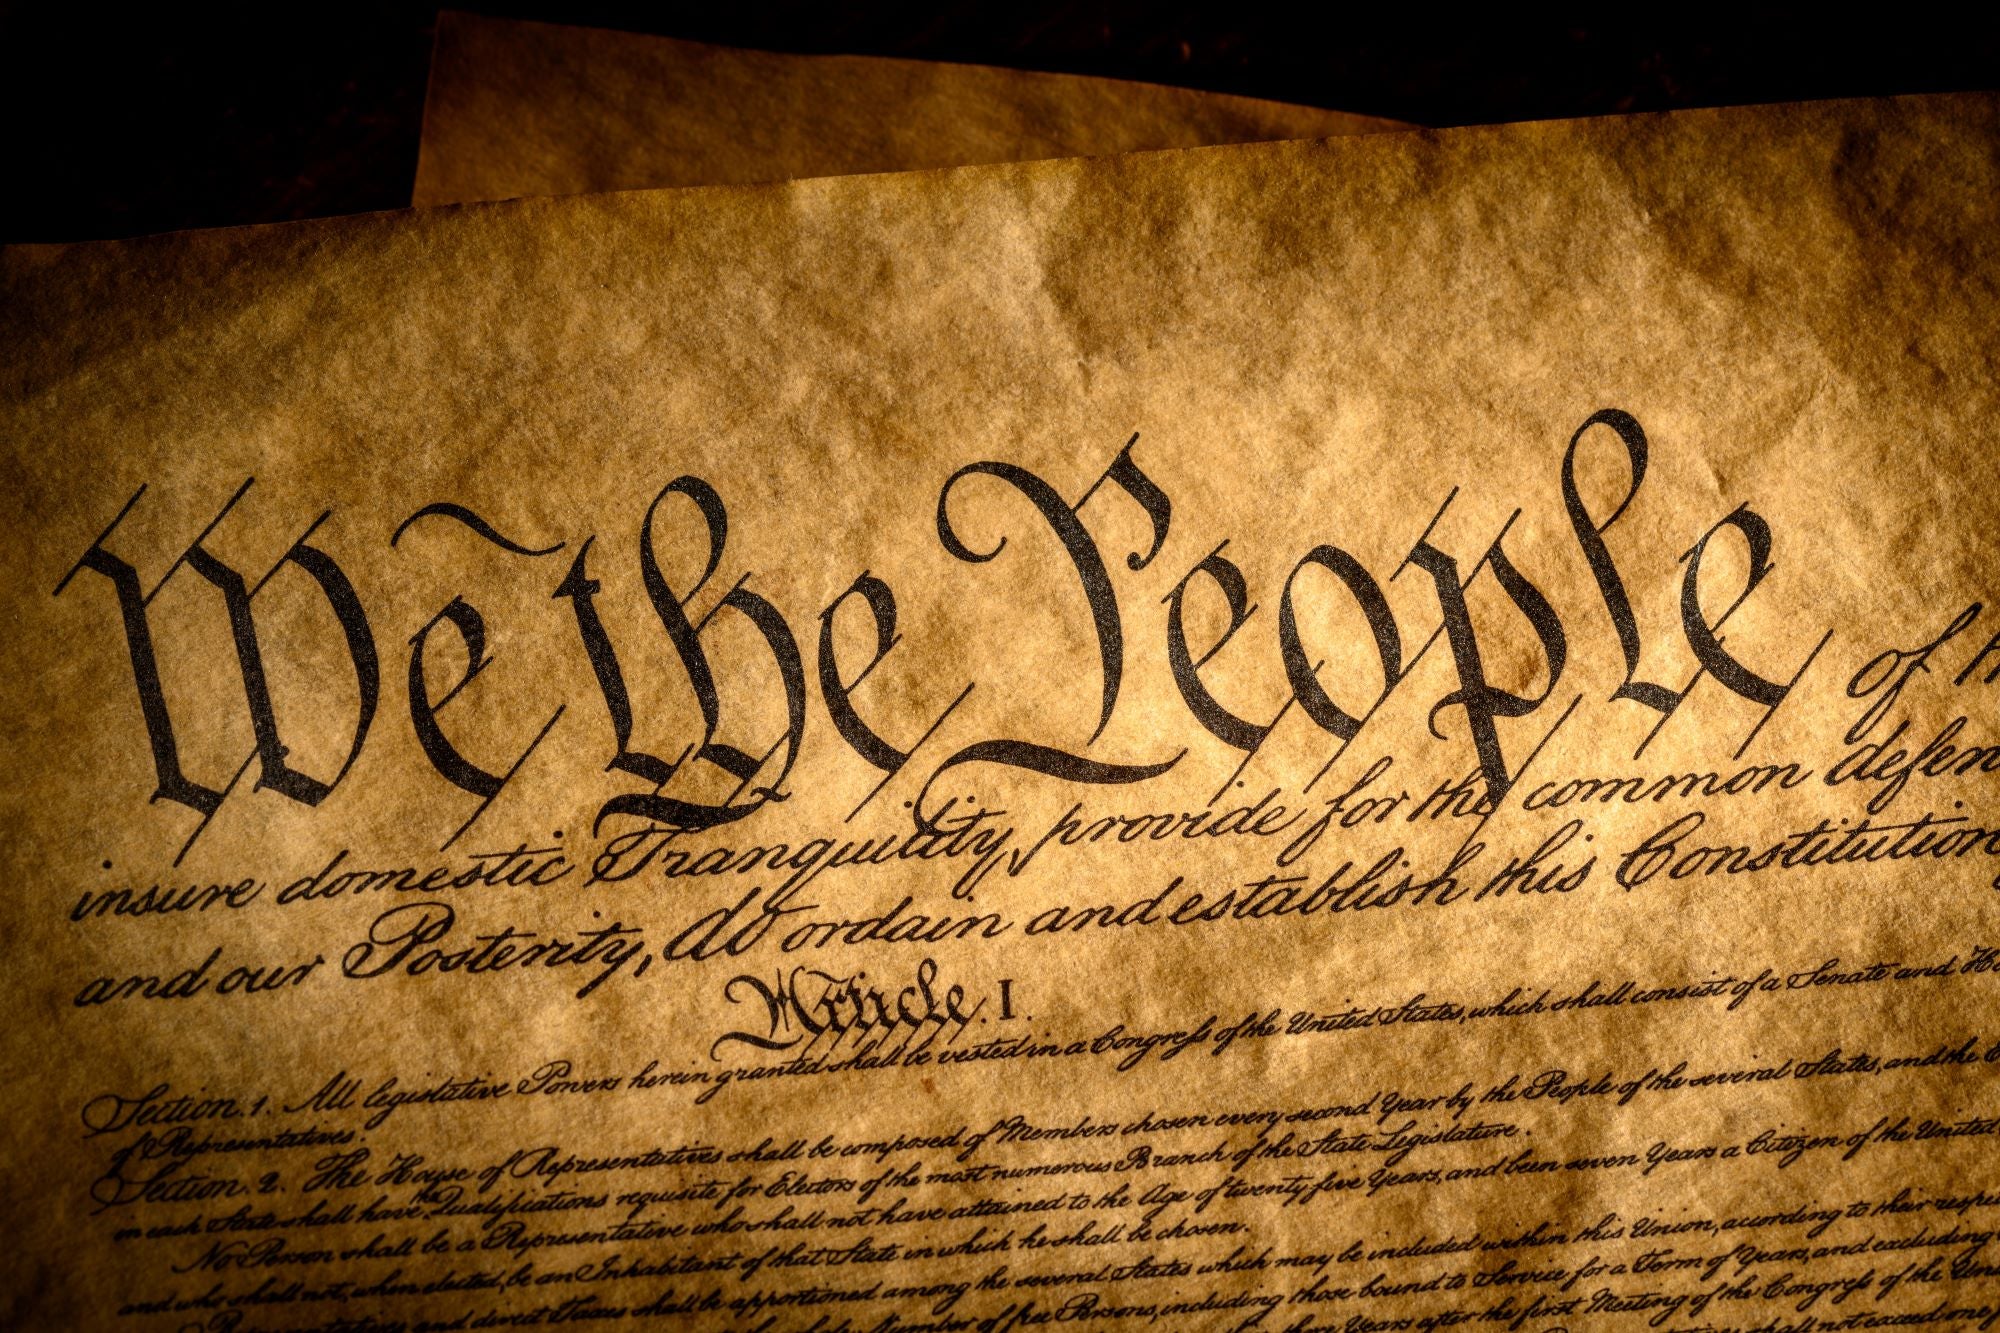 We the People of
insure domestic Tranquility, provide for the common defen
and our Posterity, do ordain and establish this Constitution
Article. I.
Section. 1. All legislative Powers herein granted shall be vested in a Congreſs of the United States, which shall consist of a Senate and Ho
of Representatives.
Section. 2. The House of Representatives shall be composed of Members chosen every second Year by the People of the several States, and the E
in each State shall have the Qualifications requisite for Electors of the most numerous Branch of the State Legislature.
No Person shall be a Representative who shall not have attained to the Age of twenty five Years, and been seven Years a Citizen of the United
and who shall not, when elected, be an Inhabitant of that State in which he shall be chosen.
Representatives and direct Taxes shall be apportioned among the several States which may be included within this Union, according to their respe
Number of free Persons, including those bound to Service for a Term of Years, and excluding
Years after the first Meeting of the Congreſs of the Uni
shall not exceed one f